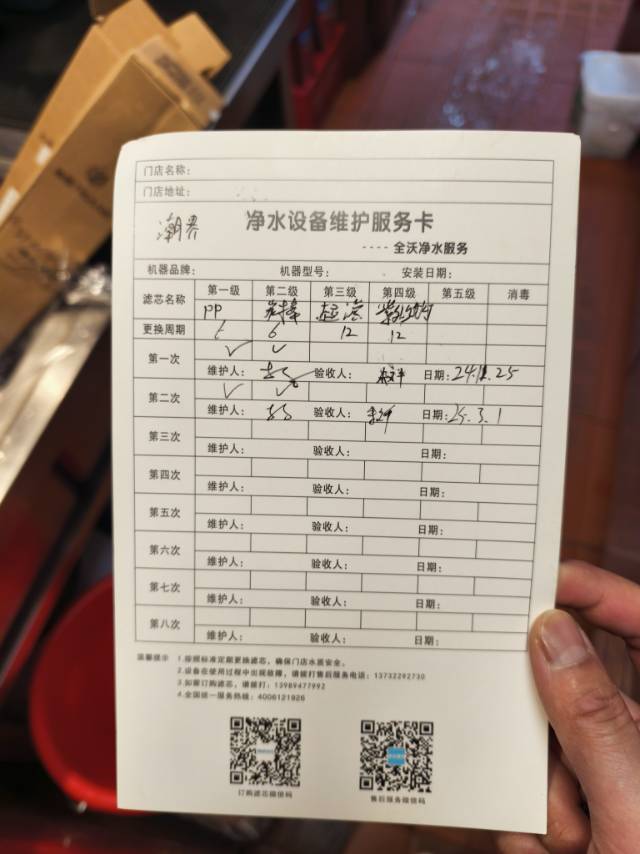 门店名称：
门店地址：
净水设备维护服务卡
----全沃净水服务
机器品牌： 机器型号： 安装日期：
滤芯名称 第一级 第二级 第三级 第四级 第五级 消毒
PP
更换周期 6 6 12 12
第一次 ✓ ✓
维护人： 验收人： 日期：24.12.25
第二次 ✓ ✓
维护人： 验收人： 日期：25.3.1
第三次
维护人： 验收人： 日期：
第四次
维护人： 验收人： 日期：
第五次
维护人： 验收人： 日期：
第六次
维护人： 验收人： 日期：
第七次
维护人： 验收人： 日期：
第八次
维护人： 验收人： 日期：
温馨提示 1.按照标准定期更换滤芯，确保门店水质安全。
2.设备在使用过程中出现故障，请拨打售后服务电话：13732292730
3.如需订购滤芯，请拨打：13989477992
4.全国统一服务热线：4006121826
订购滤芯微信码
售后服务微信码